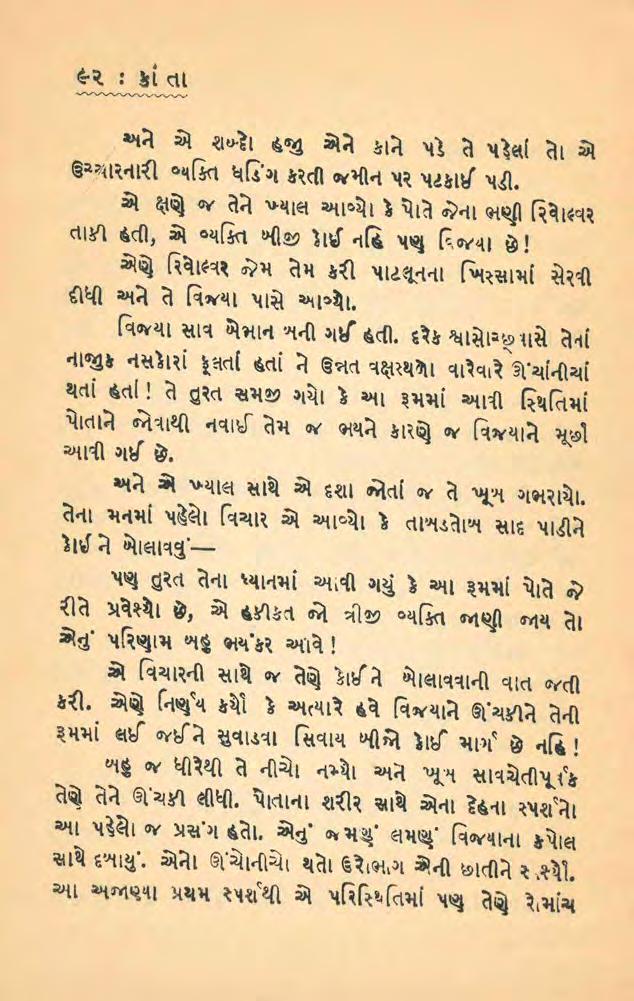 ૯૨ : કાંતા
અને એ શબ્દો હજી એને કાને પડે તે પહેલાં તો એ
ઉચ્ચારનારી વ્યક્તિ ધડિંગ કરતી જમીન પર પટકાઈ પડી.
એ ક્ષણે જ તેને ખ્યાલ આવ્યો કે પોતે જેના ભણી રિવોલ્વર
તાકી હતી, એ વ્યક્તિ બીજી કોઈ નહિ પણ વિજયા છે!
એણે રિવોલ્વર જેમ તેમ કરી પાટલૂનના ખિસ્સામાં સેરવી
દીધી અને તે વિજયા પાસે આવ્યો.
વિજયા સાવ બેભાન બની ગઈ હતી. દરેક શ્વાસોચ્છ્વાસે તેનાં
નાજુક નસકોરાં ફૂલતાં હતાં ને ઉન્નત વક્ષસ્થળો વારેવારે ઊંચાંનીચાં
થતાં હતાં! તે તુરત સમજી ગયો કે આ રૂમમાં આવી સ્થિતિમાં
પોતાને જોવાથી નવાઈ તેમ જ ભયને કારણે જ વિજયાને મૂર્છા
આવી ગઈ છે.
અને એ ખ્યાલ સાથે એ દશા જોતાં જ તે ખૂબ ગભરાયો.
તેના મનમાં પહેલો વિચાર એ આવ્યો કે તાબડતોબ સાદ પાડીને
કોઈ ને બોલાવવું—
પણ તુરત તેના ધ્યાનમાં આવી ગયું કે આ રૂમમાં પોતે જે
રીતે પ્રવેશ્યો છે, એ હકીકત જો ત્રીજી વ્યક્તિ જાણી જાય તો
એનું પરિણામ બહુ ભયંકર આવે!
એ વિચારની સાથે જ તેણે કોઈને બોલાવવાની વાત જતી
કરી. એણે નિર્ણય કર્યો કે અત્યારે હવે વિજયાને ઊંચકીને તેની
રૂમમાં લઈ જઈને સુવાડવા સિવાય બીજો કોઈ માર્ગ છે નહિ!
બહુ જ ધીરેથી તે નીચો નમ્યો અને ખૂબ સાવચેતીપૂર્વક
તેણે તેને ઊંચકી લીધી. પોતાના શરીર સાથે એના દેહના સ્પર્શનો
આ પહેલો જ પ્રસંગ હતો. એનું જમણું લમણું વિજયાના કપોલ
સાથે દબાયું. એનો ઊંચોનીચો થતો ઉરોભાગ એની છાતીને સ્પર્શ્યો.
આ અજાણ્યા પ્રથમ સ્પર્શથી એ પરિસ્થિતિમાં પણ તેણે રોમાંચ